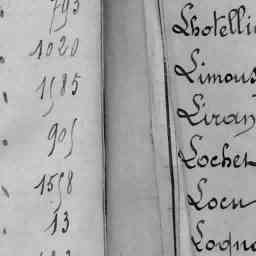 793
1020
1585
905
1558
13
Lhotelli
Limous
Liran
Lochet
Locu
Loqu